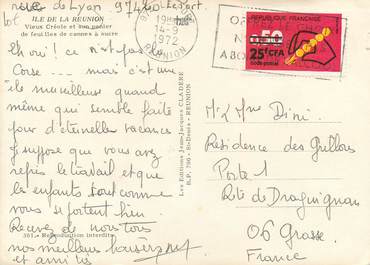 rue de Lyon 97420 Le Port.
ILE DE LA REUNION
Vieux Créole et son panier
de feuilles de cannes à sucre
Eh oui! ce n'est pas la
Corse ... mais c'est une
île merveilleuse quand
même qui semble faite
pour d'éternelles vacances
Je suppose que vous avez
repris le travail et que
les enfants tout comme
vous se portent bien.
Recevez de nous tous
nos meilleurs baisers
et amitiés
301 - Reproduction interdite
Les Editions Jean-Jacques CLADÈRE
B.P. 790 - St-Denis - REUNION
14-9
1972
REUNION
REPUBLIQUE FRANCAISE
0.50
25F CFA
code postal
M. & Mme Dini
Residence des Grillons
Porte 1
Rte de Draguignan
06 Grasse.
France